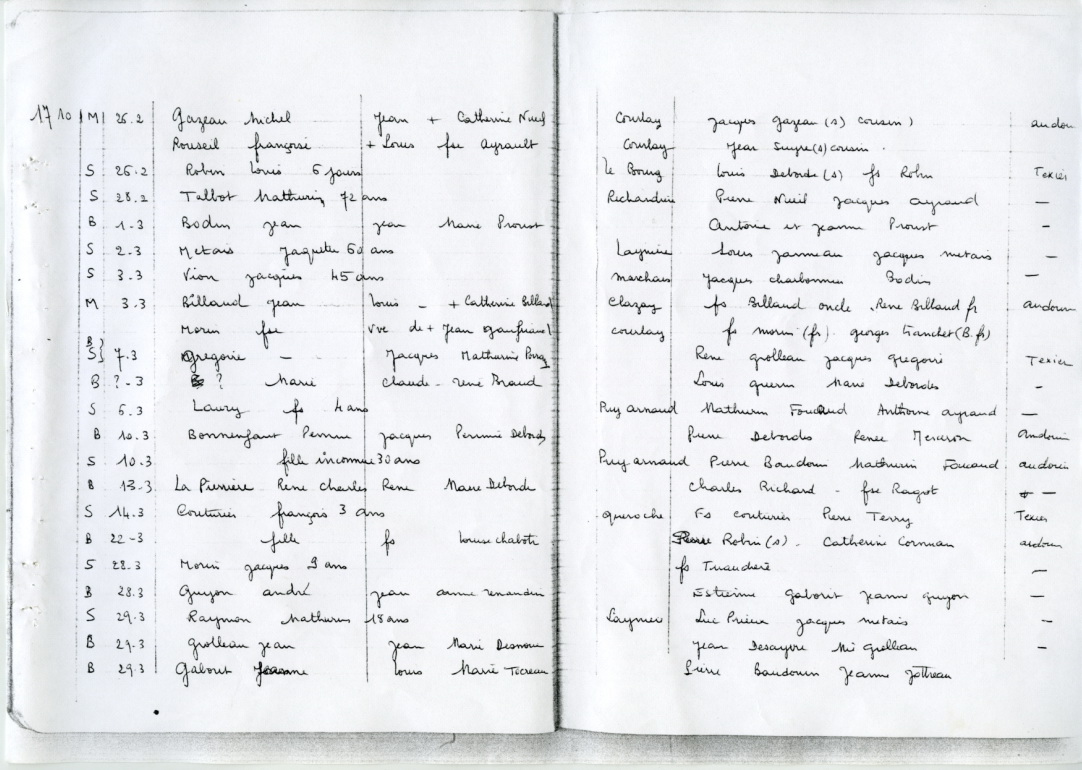 1710 M 26.2 Gazeau Michel Jean + Catherine Nueil Courlay Jacques gazeau (s) cousin) audouin
Rouseil françoise + Louis fse Ayrault Courlay Jean Suyre(s) cousin.
S 26.2 Robin Louis 6 jours le Bourg Louis Deborde (s) fs Robin Texier
S 28.2 Talbot Mathurin 72 ans Pierre Nueil Jacques ayraud —
B 1.3 Bodin Jean Jean Marie Proust Antoine et Jeanne Proust —
S 2.3 Metais Jaquette 60 ans Louis Janneau Jacques metais —
S 3.3 Vion Jacques 45 ans marchais Jacques charbonnier Bodin —
M 3.3 Billaud Jean Louis — + Catherine Billaud Clazay fs Billaud oncle René Billaud fr audouin
Morin fse vve de + Jean courlay fs morin (fr) georges (B.fr)
B} S} 7.3 gregoire — Jacques Mathurine René grolleau Jacques gregoire Texier
B ?-3 ? Marie claude - rené Braud Louis guerin Marie Debordes -
S 6.3 Laury fs 4 ans Puy arnaud Mathurin Anthoine ayraud —
B 10.3 Bonnenfant Perrine Jacques Perrine Debordes Pierre Debordes Renée audouin
S 10.3 fille inconnue 30 ans Puy arnaud Pierre Baudouin Mathurin audouin
B 13-3 La Pierrière René Charles René Marie Deborde Charles Richard - fse Ragot —
S 14.3 Couturier françois 3 ans Fs couturier Pierre Terry Texier
B 22-3 fille fs Louise chabote Pierre Robin (s). Catherine audouin
S 28.3 Morin Jacques 9 ans fs —
B 28.3 Guyon andré Jean anne Estienne gaborit Jeanne guyon —
S 29.3 Raymon Mathurin 18 ans Luc Prieur Jacques metais —
B 29.3 grolleau Jean Jean Marie Jean Desayvre Mie grolleau —
B 29.3 Gaborit Jeanne Louis Marie Pierre Baudouin Jeanne